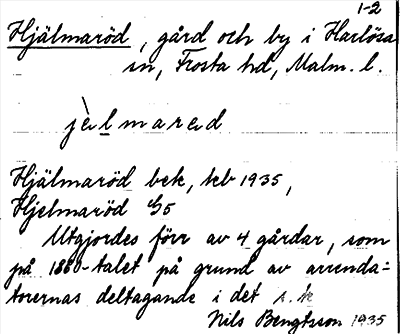 1-2
Hjälmaröd, gård och by i Harlösa
sn, Frosta hd, Malm. l.
jèlmared
Hjälmaröd bek, kb 1935,
Hjelmaröd G5
Utgjordes förr av 4 gårdar, som
på 1860-talet på grund av arrenda-
torernas deltagande i det s.k
Nils Bengtsson 1935